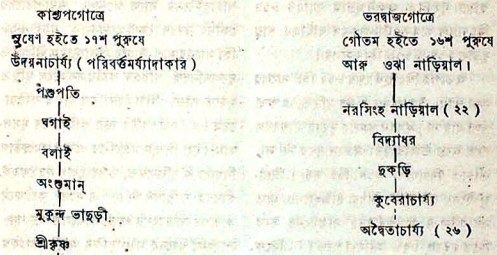 কাশ্যপগোত্রে
সুষেণ হইতে ১৭শ পুরুষে
উদয়নাচার্য্য ( পরিবর্ত্তমর্য্যাদাকার )
পশুপতি
ঘগাই
বলাই
অংশুমান্
মুকুন্দ ভাদুড়ী
শ্রীকৃষ্ণ
ভরদ্বাজগোত্রে
গৌতম হইতে ১৬শ পুরুষে
আরু ওঝা নাড়িয়াল।
নরসিংহ নাড়িয়াল ( ২২ )
বিদ্যাধর
ছকড়ি
কুবেরাচার্য্য
অদ্বৈতাচার্য্য ( ২৬ )